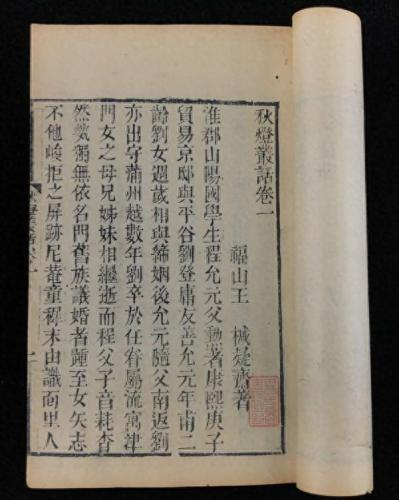 秋燈叢話卷一
福山王 椷凝齋著
淮郡山陽國學生程允元父勳著康熙庚子
貿易京邸與平谷劉登庸友善允元年甫二
齡劉女週歲相與締姻後允元隨父南返劉
亦出守蒲州越數年劉卒於任眷屬流寓津
門女之母兄姊妹相繼逝而程父子音耗杳
然煢獨無依名門舊族議婚者踵至女矢志
不他峻拒之屏跡尼菴童穉末由識面里人